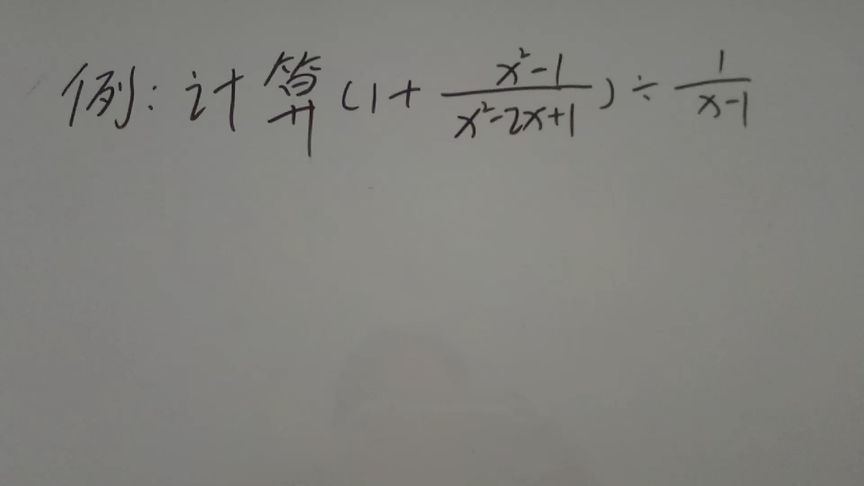 例: 计算 (1 + \frac{x²-1}{x²-2x+1}) ÷ \frac{1}{x-1}